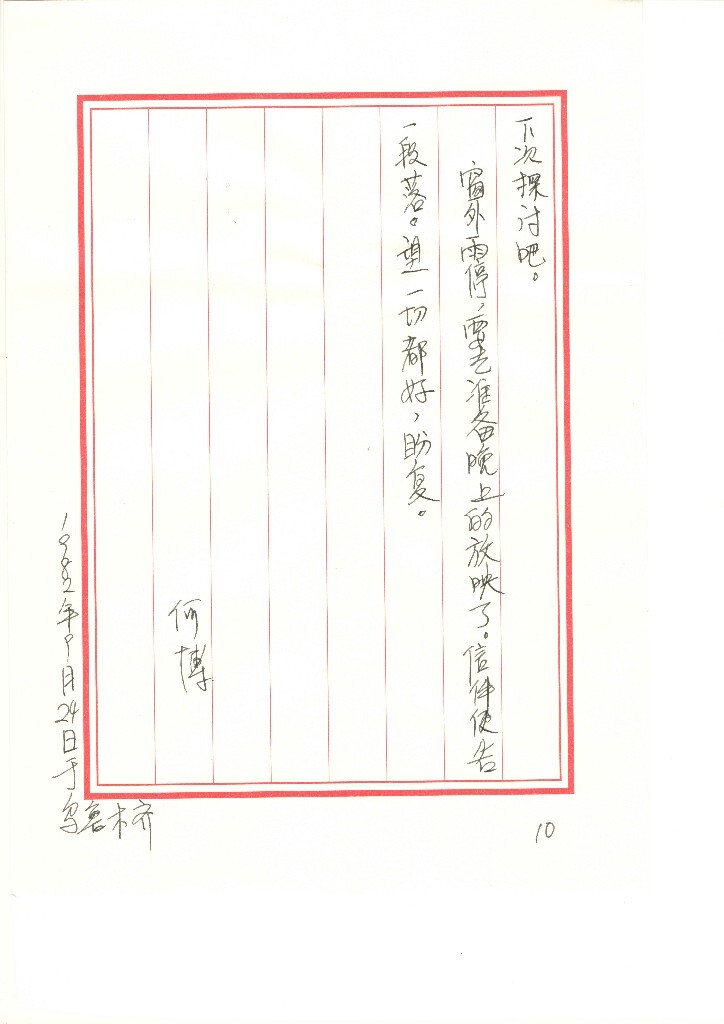 下次探讨吧。
窗外雨停，要去准备晚上的放映了。信件便告
一段落。望一切都好，盼复。
何博
1992年9月24日于
乌鲁木齐
10